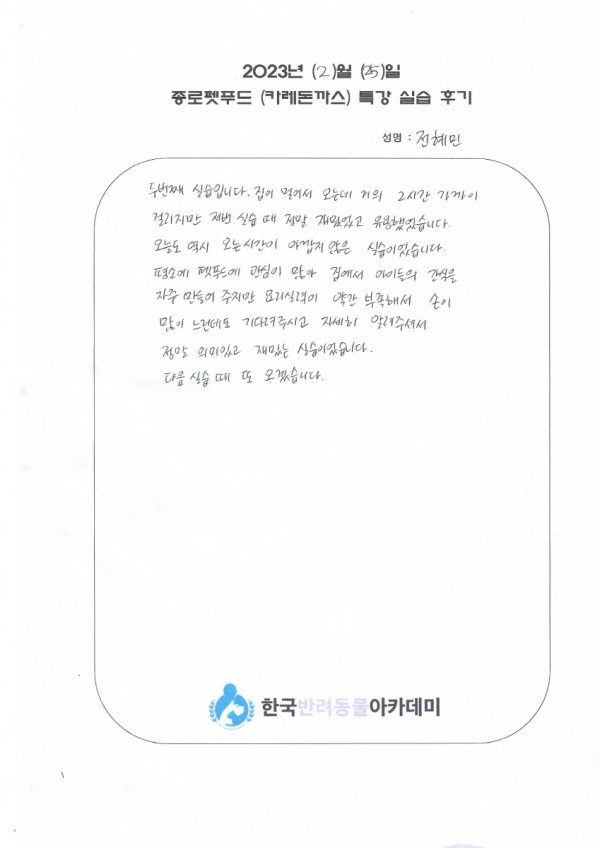 2023년 (2)월 (25)일
종로펫푸드 (카레돈까스) 특강 실습 후기
성명 : 전혜민
두번째 실습입니다. 집이 멀어서 오는데 거의 2시간 가까이
걸리지만 저번 실습 때 정말 재밌었고 유용했었습니다.
오늘도 역시 오는시간이 아깝지 않은 실습이었습니다.
평소에 펫푸드에 관심이 많아 집에서 아이들의 간식을
자주 만들어 주지만 요리실력이 약간 부족해서 손이
많이 느린데도 기다려주시고 자세히 알려주셔서
정말 의미있고 재밌는 실습이었습니다.
다음 실습 때 또 오겠습니다.
한국반려동물아카데미